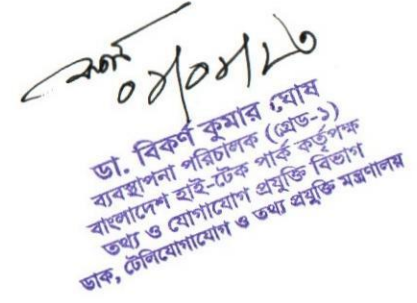 ডা. বিকর্ণ কুমার ঘোষ
ব্যবস্থাপনা পরিচালক (গ্রেড-১)
বাংলাদেশ হাই-টেক পার্ক কর্তৃপক্ষ
তথ্য ও যোগাযোগ প্রযুক্তি বিভাগ
ডাক, টেলিযোগাযোগ ও তথ্য প্রযুক্তি মন্ত্রণালয়